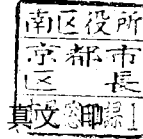 南区役所
京都市
区長
文印